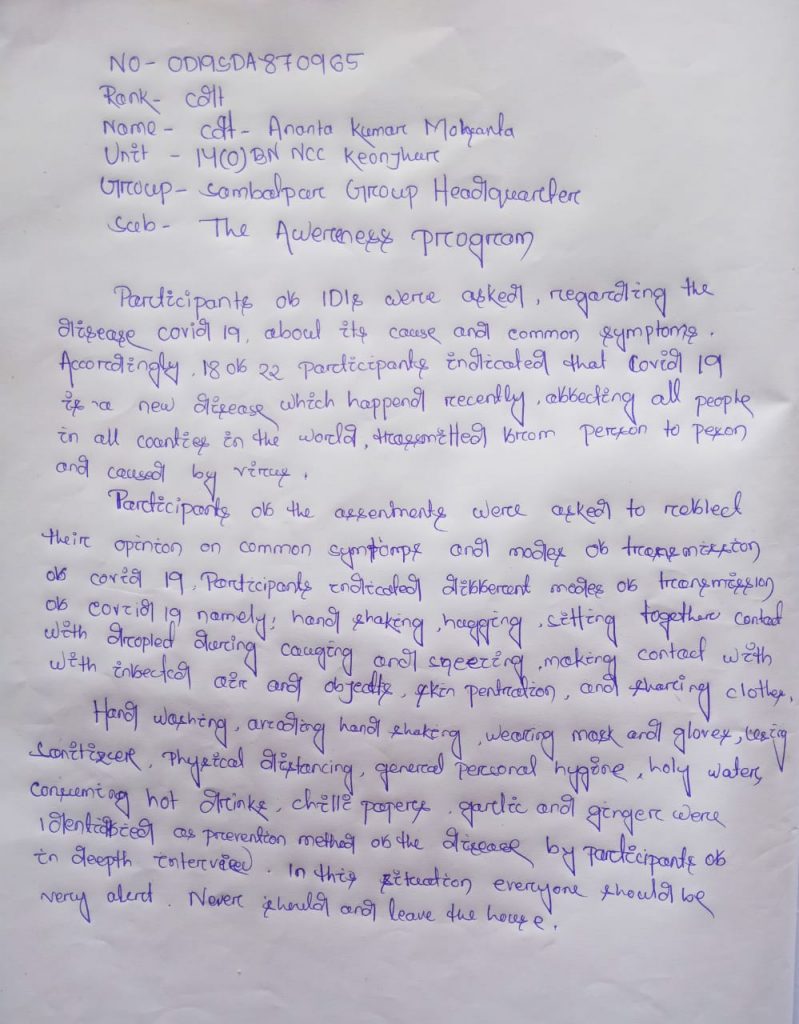 NO - OD19SDA870965
Rank- cdt
Name - cdt- Ananta Kumar Mohanta
Unit - 14(O) BN NCC Keonjhar
Group - Sambalpur Group Headquarter
Sub- The Awereness program
Participants of IDIs were asked, regarding the
disease covid 19, about its cause and common symptoms.
Accordingly, 18 of 22 participants indicated that Covid 19
is a new disease which happend recently, affecting all people
in all counties in the world, trasmitted from person to peson
and caused by virus.
Participants of the assentments were asked to reflect
their opinion on common symptomps and modes of transmission
of covid 19. Participants indicated different modes of transmission
of Covid 19 namely; hand shaking, hugging, sitting together contact
with dropled during cauging and sneezing, making contact with
with infected air and objects, skin pentration, and sharing clothes.
Hand washing, avoading hand shaking, wearing mask and gloves, using
sanitiser, physical distancing, general personal hygine, holy water,
consuming hot drinks, chilli papers, garlic and ginger were
identified as prevention method of the disease by participants of
in deepth interview. In this situation everyone should be
very alert. Never should and leave the house.